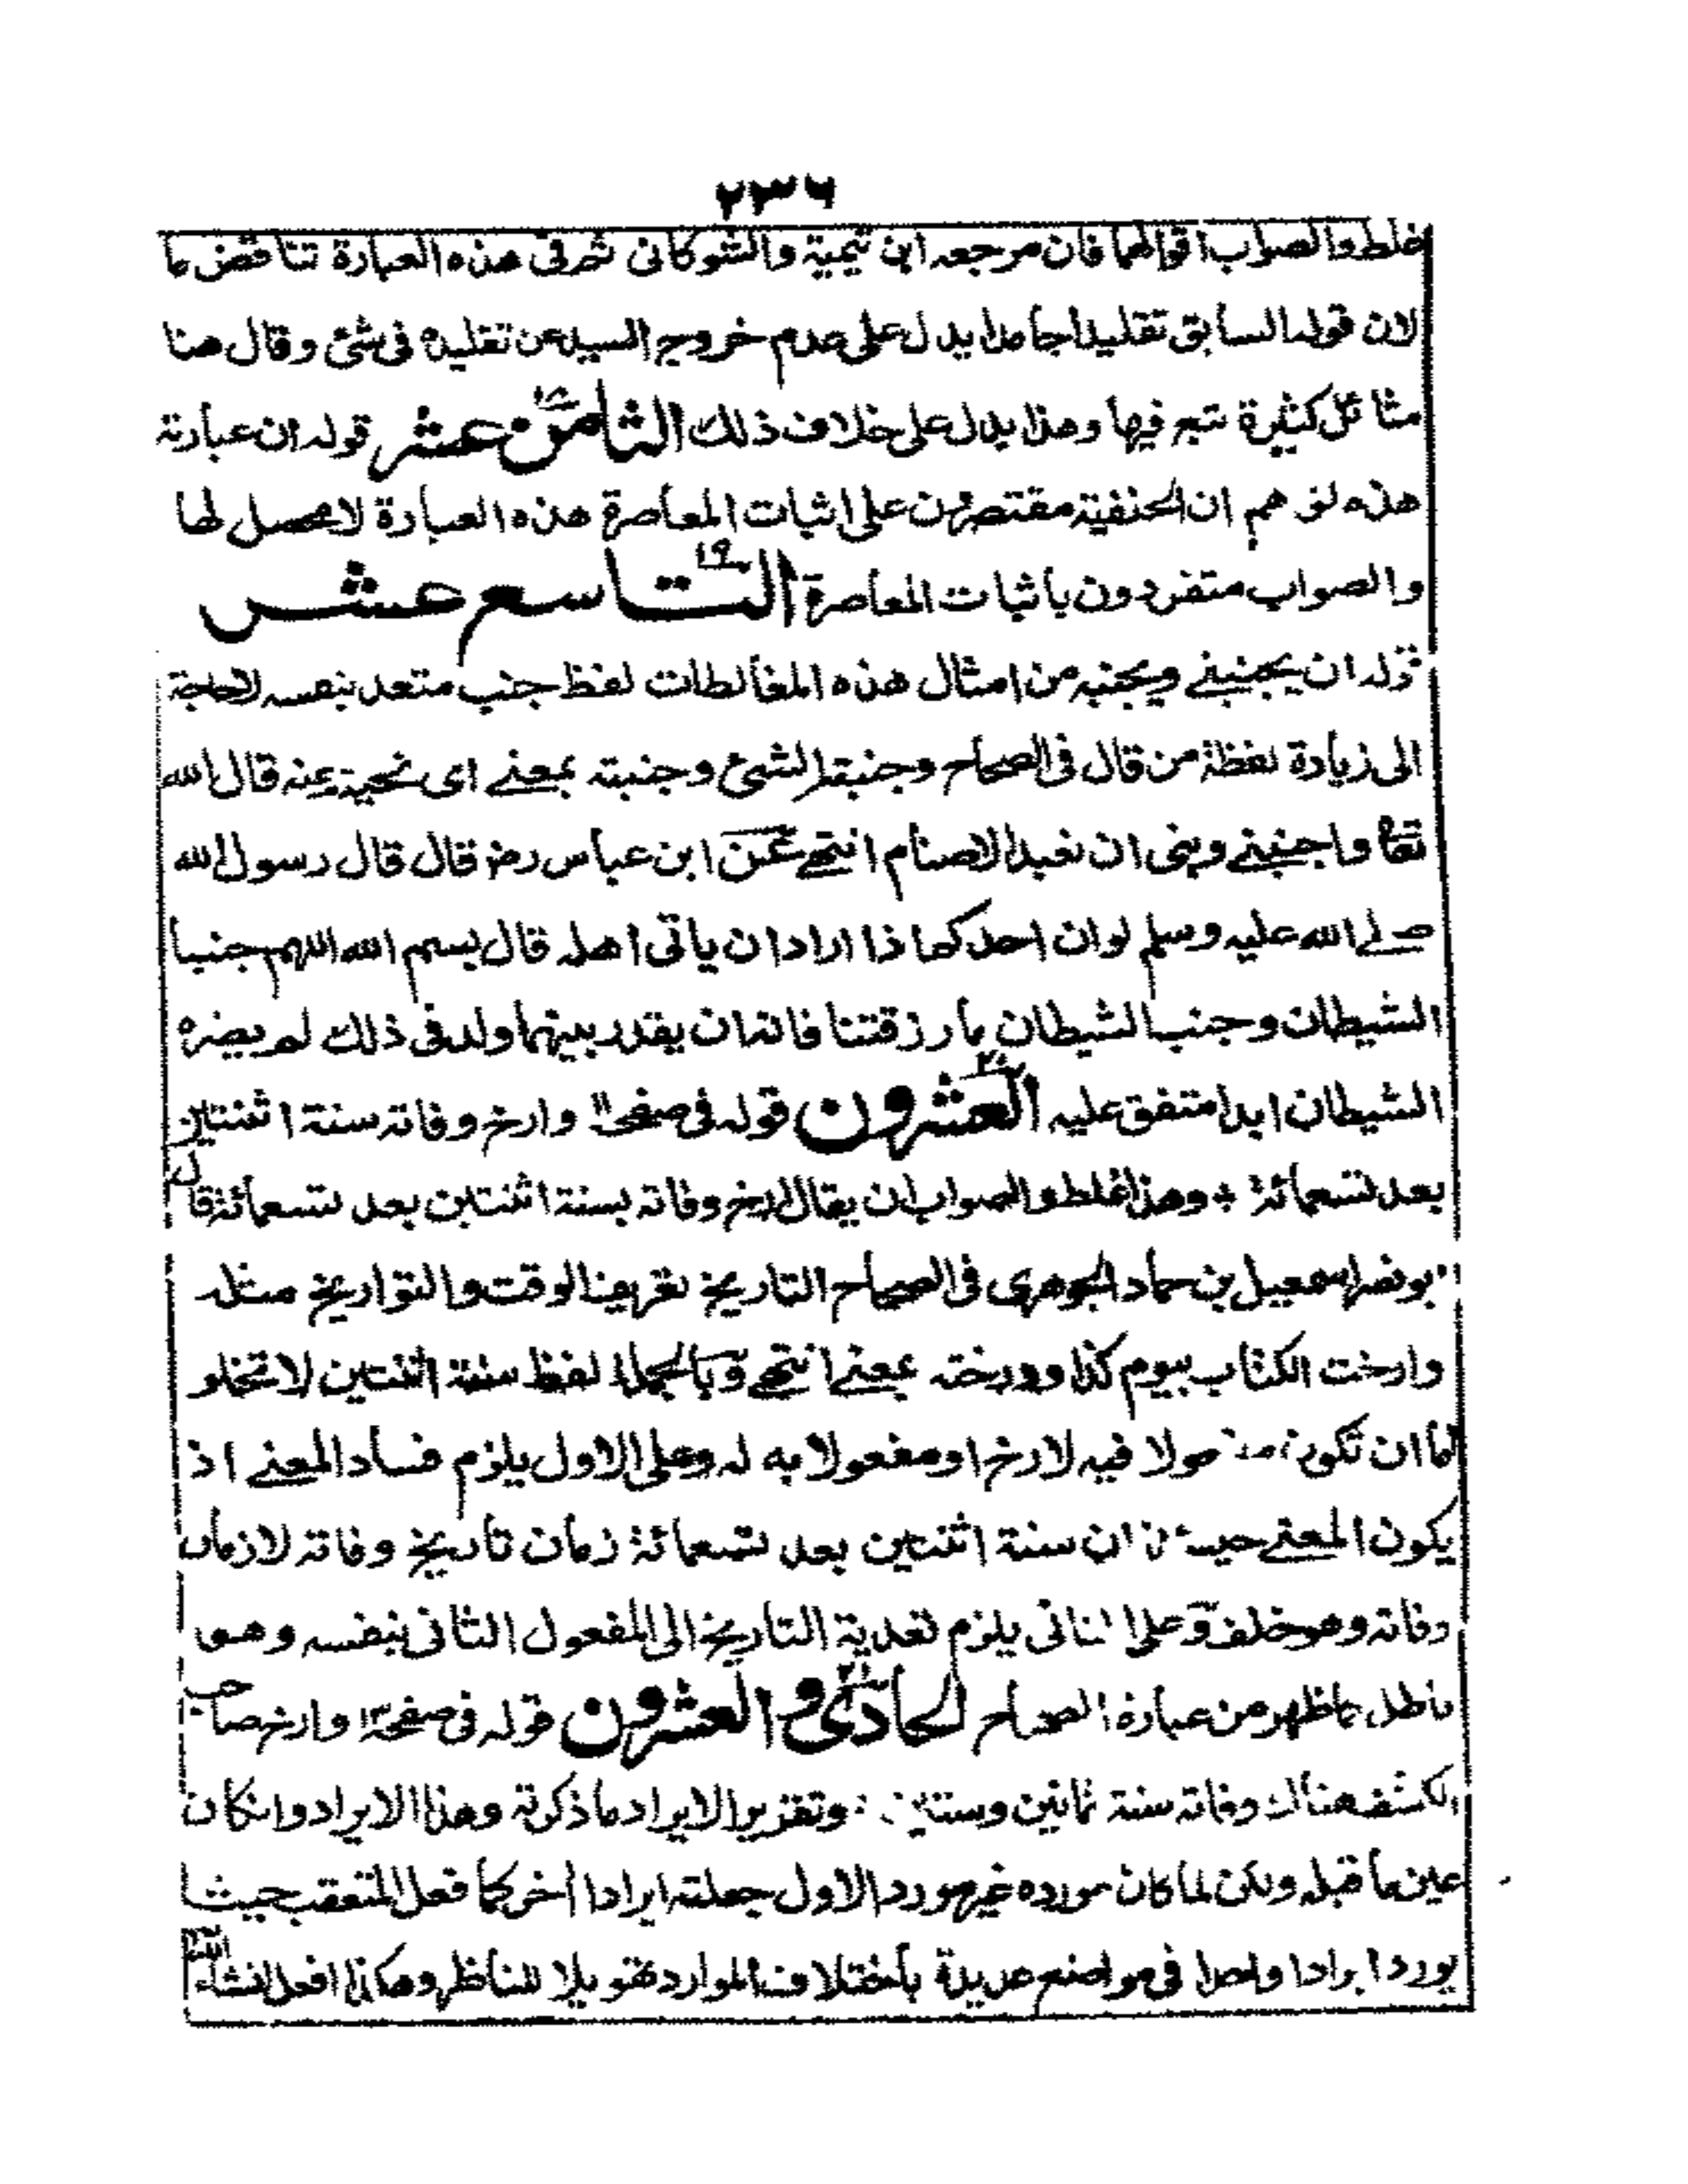 ٢٣٦
غلط والصواب اقوالهما فان مرجعه ابن تيمية والشوكانى ثم فى هذه العبارة تناقض ما
لان قوله السابق تقليدا جامدا يدل على عدم خروج السيد عن تقليده فى شئ وقال هنا
مثائل كثيرة تبع فيها وهذا يدل على خلاف ذلك الثامن عشر ١٨ قوله ان عبارته
هذه توهم ان الحنفية مقتصرون على اثبات المعاصرة هذه العبارة لا محصل لها
والصواب متفردون باثبات المعاصرة التاسع عشر ١٩
قوله ان يجنبنى ويجنبه من امثال هذه المغالطات لفظ جنب متعد بنفسه لا حاجة
الى زيادة لفظة من قال فى الصحاح وجنبته الشئ وجنبته بمعنى اى نحيته عنه قال الله
تعا واجنبنى وبنى ان نعبد الاصنام انتهى عن ابن عباس رضـ قال قال رسول الله
صلى الله عليه وسلم لو ان احدكم اذا اراد ان ياتى اهله قال بسم الله اللهم جنبنا
الشيطان وجنب الشيطان ما رزقتنا فانه ان يقدر بينهما ولد فى ذلك لم يضره
الشيطان ابدا متفق عليه العشرون ٢٠ قوله فى صفحة ١١ وارخ وفاته سنة اثنتين
بعد تسعمائة ؞ وهذا غلط والصواب ان يقال ارخ وفاته بسنة اثنتين بعد تسعمائة قال
ابو نصر اسمعيل بن حماد الجوهرى فى الصحاح التاريخ تعريف الوقت والتواريخ مثله
وارخت الكتاب بيوم كذا وورخته بمعنى انتهى وبالجملة لفظ سنة اثنتين لا تخلو
اما ان تكون مفعولا فيه لارخ او مفعولا به له وعلى الاول يلزم فساد المعنى اذ
يكون المعنى حينئذ ان سنة اثنتين بعد تسعمائة زمان تاريخ وفاته لا زمان
وفاته وهو خلف وعلى الثانى يلزم تعدية التاريخ الى المفعول الثانى بنفسه وهو
باطل كما ظهر من عبارة الصحاح الحادى والعشرون ٢١ قوله فى صفحة وارخ صاحب
الكشف هناك وفاته سنة ثمانين وستين وتقرير الايراد ما ذكرته وهذا الايراد وانكان
عين ما قبله ولكن لما كان مورده غير مورد الاول جعلته ايرادا أخر كما فعل المتعقب حيث
يورد ايرادا واحدا فى مواضع عديدة باختلاف الموارد تهويلا للناظر وهكذا افعل انشاء الله